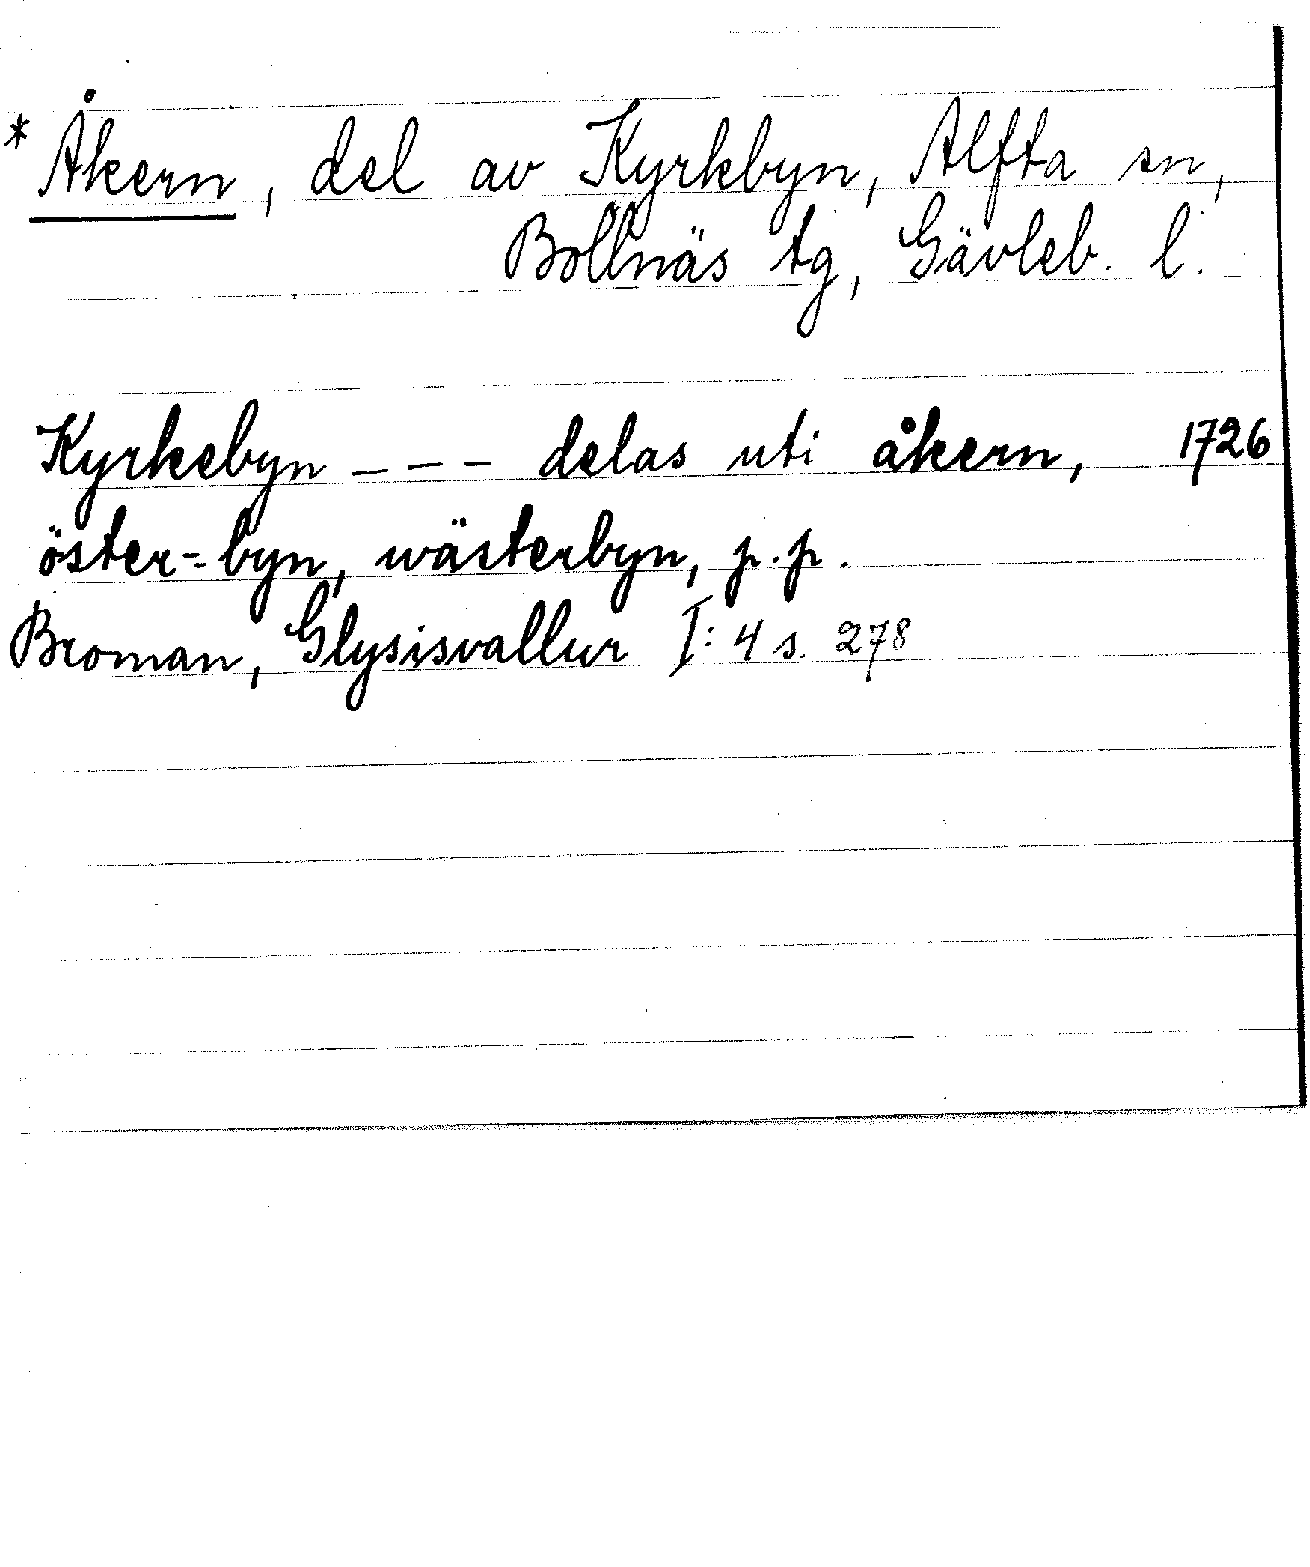 * Åkern, del av Kyrkbyn, Alfta sn,
Bollnäs tg, Gävleb. l.
Kyrkebyn --- delas uti åkern, 1726
öster-byn, wästerbyn, p.p.
Broman, Glysisvallur I:4 s. 278